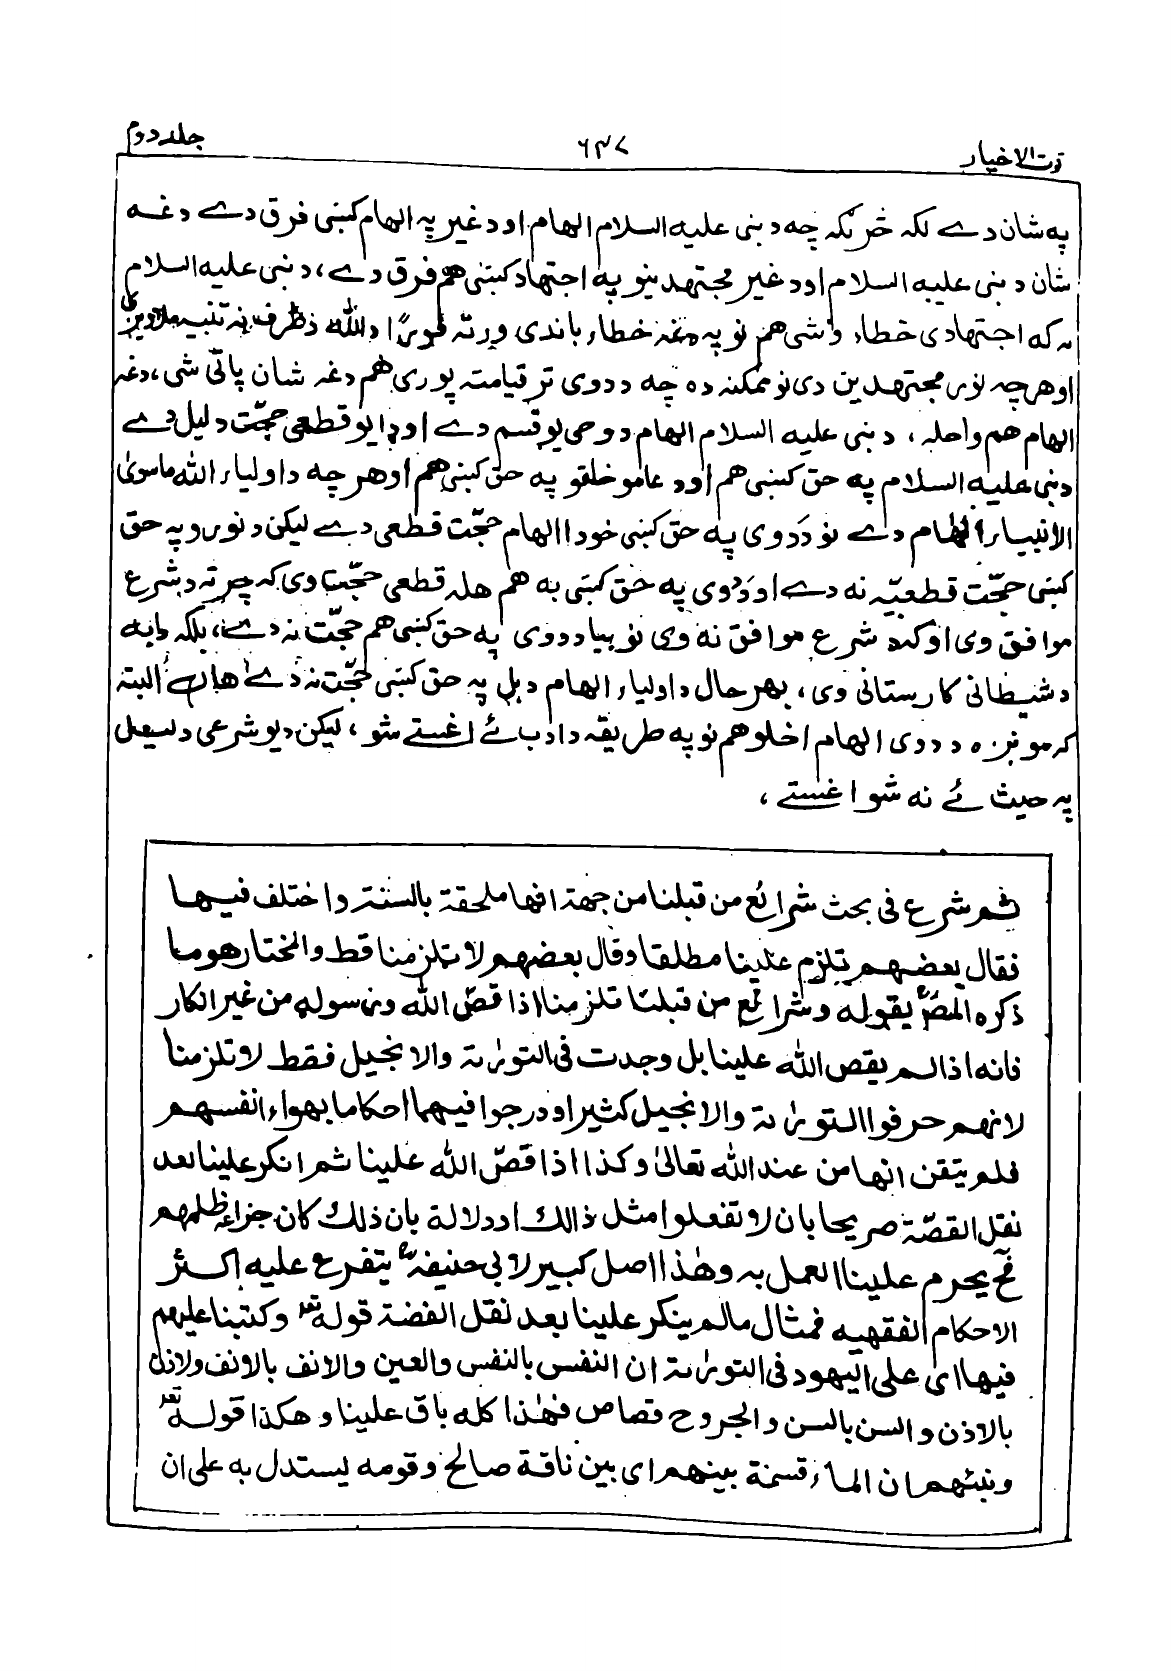 قوت الاخیار ۶۴۷ جلد دوم
په شان دے لکه څرنګه چه د نبی علیه السلام الهام او د غیر په الهام کښی فرق دے دغه
شان د نبی علیه السلام او د غیر مجتهدینو په اجتهاد کښی هم فرق دے، د نبی علیه السلام
نه که اجتهادی خطاء وشی هم نو په دغه خطاء باندی ورته فوراً د الله د طرف نه تنبیه ملاویږی
اوهرچه نور مجتهدین دی نو ممکنه ده چه د دوی تر قیامته پوری هم دغه شان پاتی شی، دغه
الهام هم واخله، د نبی علیه السلام الهام د وحی یو قسم دے او دا یو قطعی حجّت دلیل دے
د نبی علیه السلام په حق کښی هم او د عامو خلقو په حق کښی هم اوهر چه د اولیاء الله ماسویٰ
الانبیاء الهام دے نو د دوی په حق کښی خو دا الهام حجّت قطعی دے لیکن د نورو په حق
کښی حجّت قطعیّه نه دے او د دوی په حق کښی به هم هله قطعی حجّت وی که چرته د شرع
موافق وی او که د شرع موافق نه وی نو بیا د دوی په حق کښی هم حجّت نه دے، بلکه دا به
د شیطانی کارستانی وی، بهرحال د اولیاء الهام د بل په حق کښی حجّت نه دے هاں البته
که مونږه د دوی الهام اخلو هم نو په طریقه د ادب ئے اغستے شو، لیکن د یو شرعی دلیل
په حیث ئے نه شو اغستے،
ثم شرع فی بحث شرائع من قبلنا من جهة انها ملحقة بالسنة واختلف فیها
فقال بعضهم تلزم علینا مطلقا وقال بعضهم لا تلزمنا قط والمختار هو ما
ذکره المصؒ بقوله وشرائع من قبلنا تلزمنا اذا قصّ الله ورسوله من غیر انکار
فانه اذا لم یقص الله علینا بل وجدت فی التورٰىة والانجیل فقط لا تلزمنا
لانهم حرفوا التورٰىة والانجیل کثیرا ودرجوا فیهما احکاما بهواء انفسهم
فلم یتقن انها من عند الله تعالیٰ وکذا اذا قصّ الله علینا ثم انکر علینا بعد
نقل القصّة صریحا بان لا تفعلوا مثل ذالك او دلالة بان ذلك کان جزاء ظلمهم
فح یحرم علینا العمل به وهٰذا اصل کبیر لابی حنیفةؒ یتفرع علیه اکثر
الاحکام الفقهیه فمثال مالم ینکر علینا بعد نقل القصة قوله تعٰ وکتبنا علیهم
فیها ای علی الیهود فی التورٰىة ان النفس بالنفس والعین والانف بالانف والاذن
بالاذن والسن بالسن والجروح قصاص فهٰذا کله باق علینا وهکذا قوله تعٰ
ونبئهم ان الماء قسمة بینهم ای بین ناقة صالح وقومه یستدل به علی ان